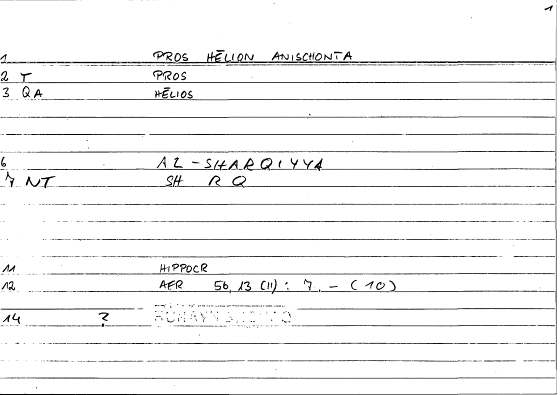 1
1 PROS HĒLION ANISCHONTA
2 T PROS
3 QA HĒLIOS
6 AL-SHARQIYYA
7 NT SH R Q
11 HIPPOCR
12 AER 56, 13 (11): 7. - (10)
14 ?